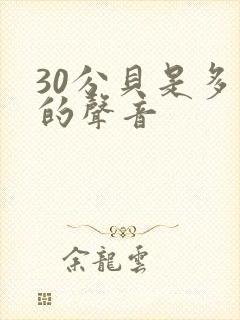 30公貝是多
的聲音
余龍雲